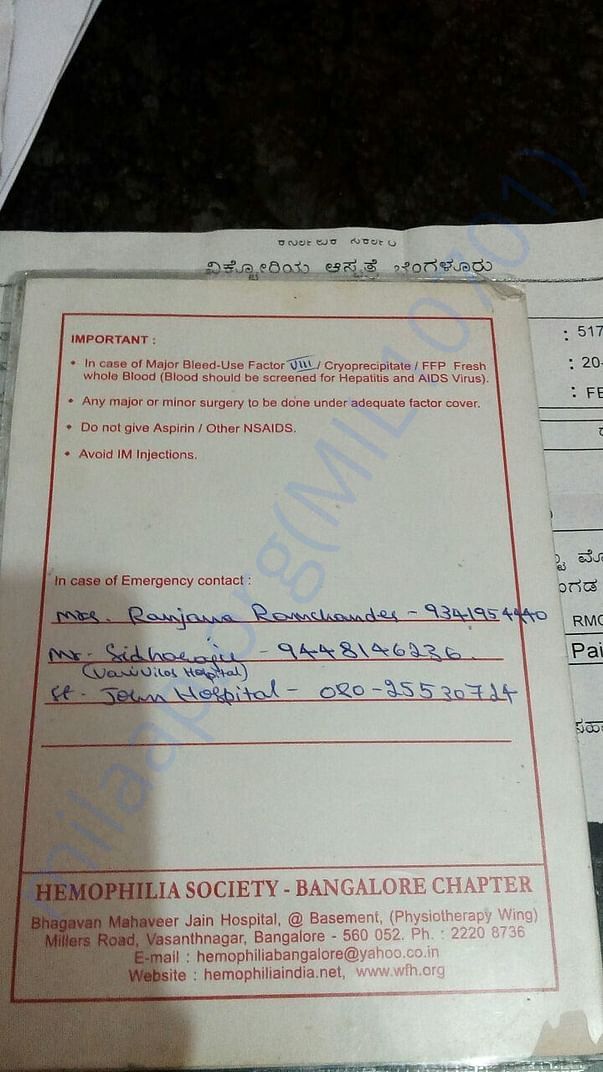 ಕರ್ನಾಟಕ ಸರ್ಕಾರ
ವಿಕ್ಟೋರಿಯ ಆಸ್ಪತ್ರೆ ಬೆಂಗಳೂರು
: 517
: 20-
: FE
IMPORTANT :
• In case of Major Bleed-Use Factor VIII / Cryoprecipitate / FFP Fresh
whole Blood (Blood should be screened for Hepatitis and AIDS Virus).
• Any major or minor surgery to be done under adequate factor cover.
• Do not give Aspirin / Other NSAIDS.
• Avoid IM Injections.
RMO
Pai
In case of Emergency contact :
Mrs. Ranjana Ramchander - 9341954440
Mr. - 9448146236
(Vani Vilas Hospital)
St. John Hospital - 080-25530724
HEMOPHILIA SOCIETY - BANGALORE CHAPTER
Bhagavan Mahaveer Jain Hospital, @ Basement, (Physiotherapy Wing)
Millers Road, Vasanthnagar, Bangalore - 560 052. Ph. : 2220 8736
E-mail : hemophiliabangalore@yahoo.co.in
Website : hemophiliaindia.net, www.wfh.org
milaap.org(MIL10701)